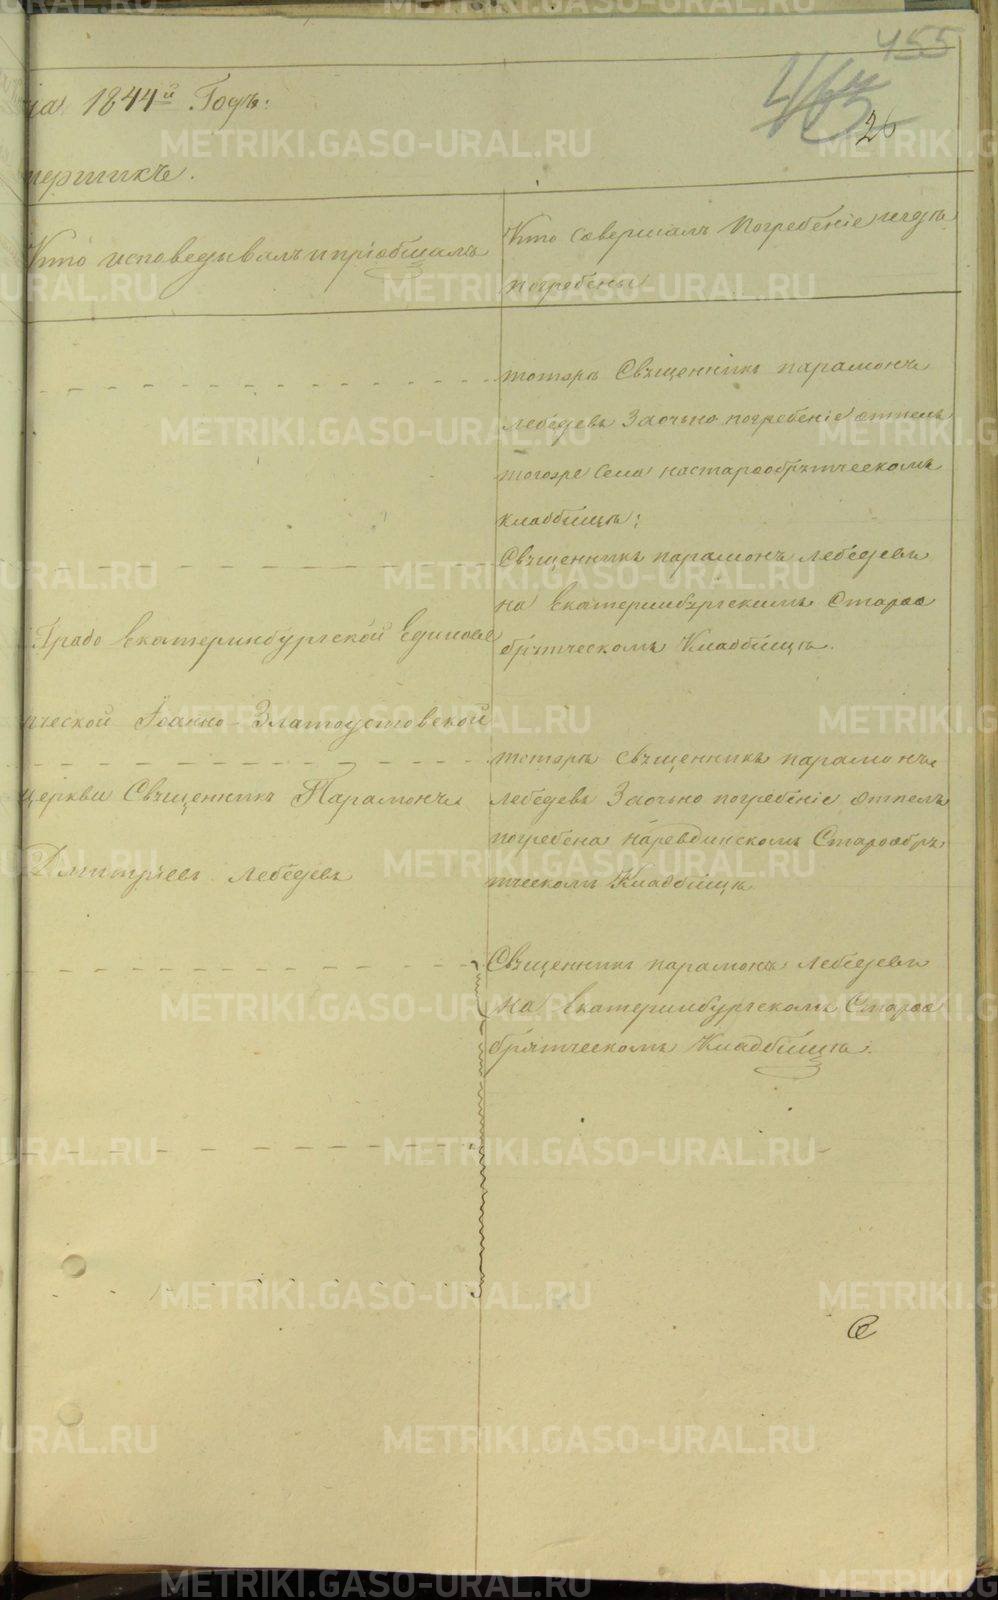 455
26
на 1844й Годъ:
мершихъ.
Кто исповедывалъ и пріобщалъ
Кто совершалъ Погребеніе игдѣ
погребены
тотъ же Свѣщенникъ парамонъ
лебедевъ Заочьно погребеніе отпелъ
тогоже села настарообрѣтческомъ
кладбищѣ:
Свѣщенникъ парамонъ лебедевъ
на Екатеринбургскимъ Староо
брѣтческомъ Кладбищѣ.
Градо Екатеринбургской Единове
рческой Іоанно-Златоустовской
церкви Свѣщенникъ Парамонъ
Дмитріевъ Лебедевъ
тотъ же свѣщенникъ парамонъ
лебедевъ Заочьно погребеніе отпелъ
погребена наревдинскомъ Старообрѣ
тческомъ Кладбищѣ
Свѣщенникъ парамонъ лебедевъ
на Екатеринбургскомъ Староо
брѣтческомъ Кладбищѣ.
METRIKI.GASO-URAL.RU